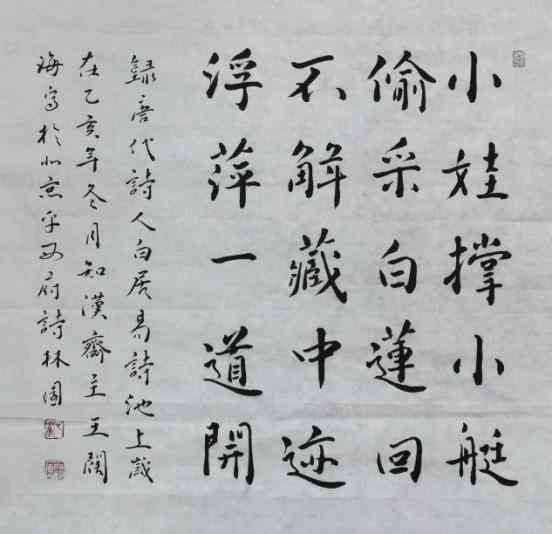 小娃撑小艇
偷采白蓮回
不解藏中迹
浮萍一道開
録唐代詩人白居易詩池上歲
在乙亥年冬月知漢齋主王闊
海寫於北京平西府詩林園